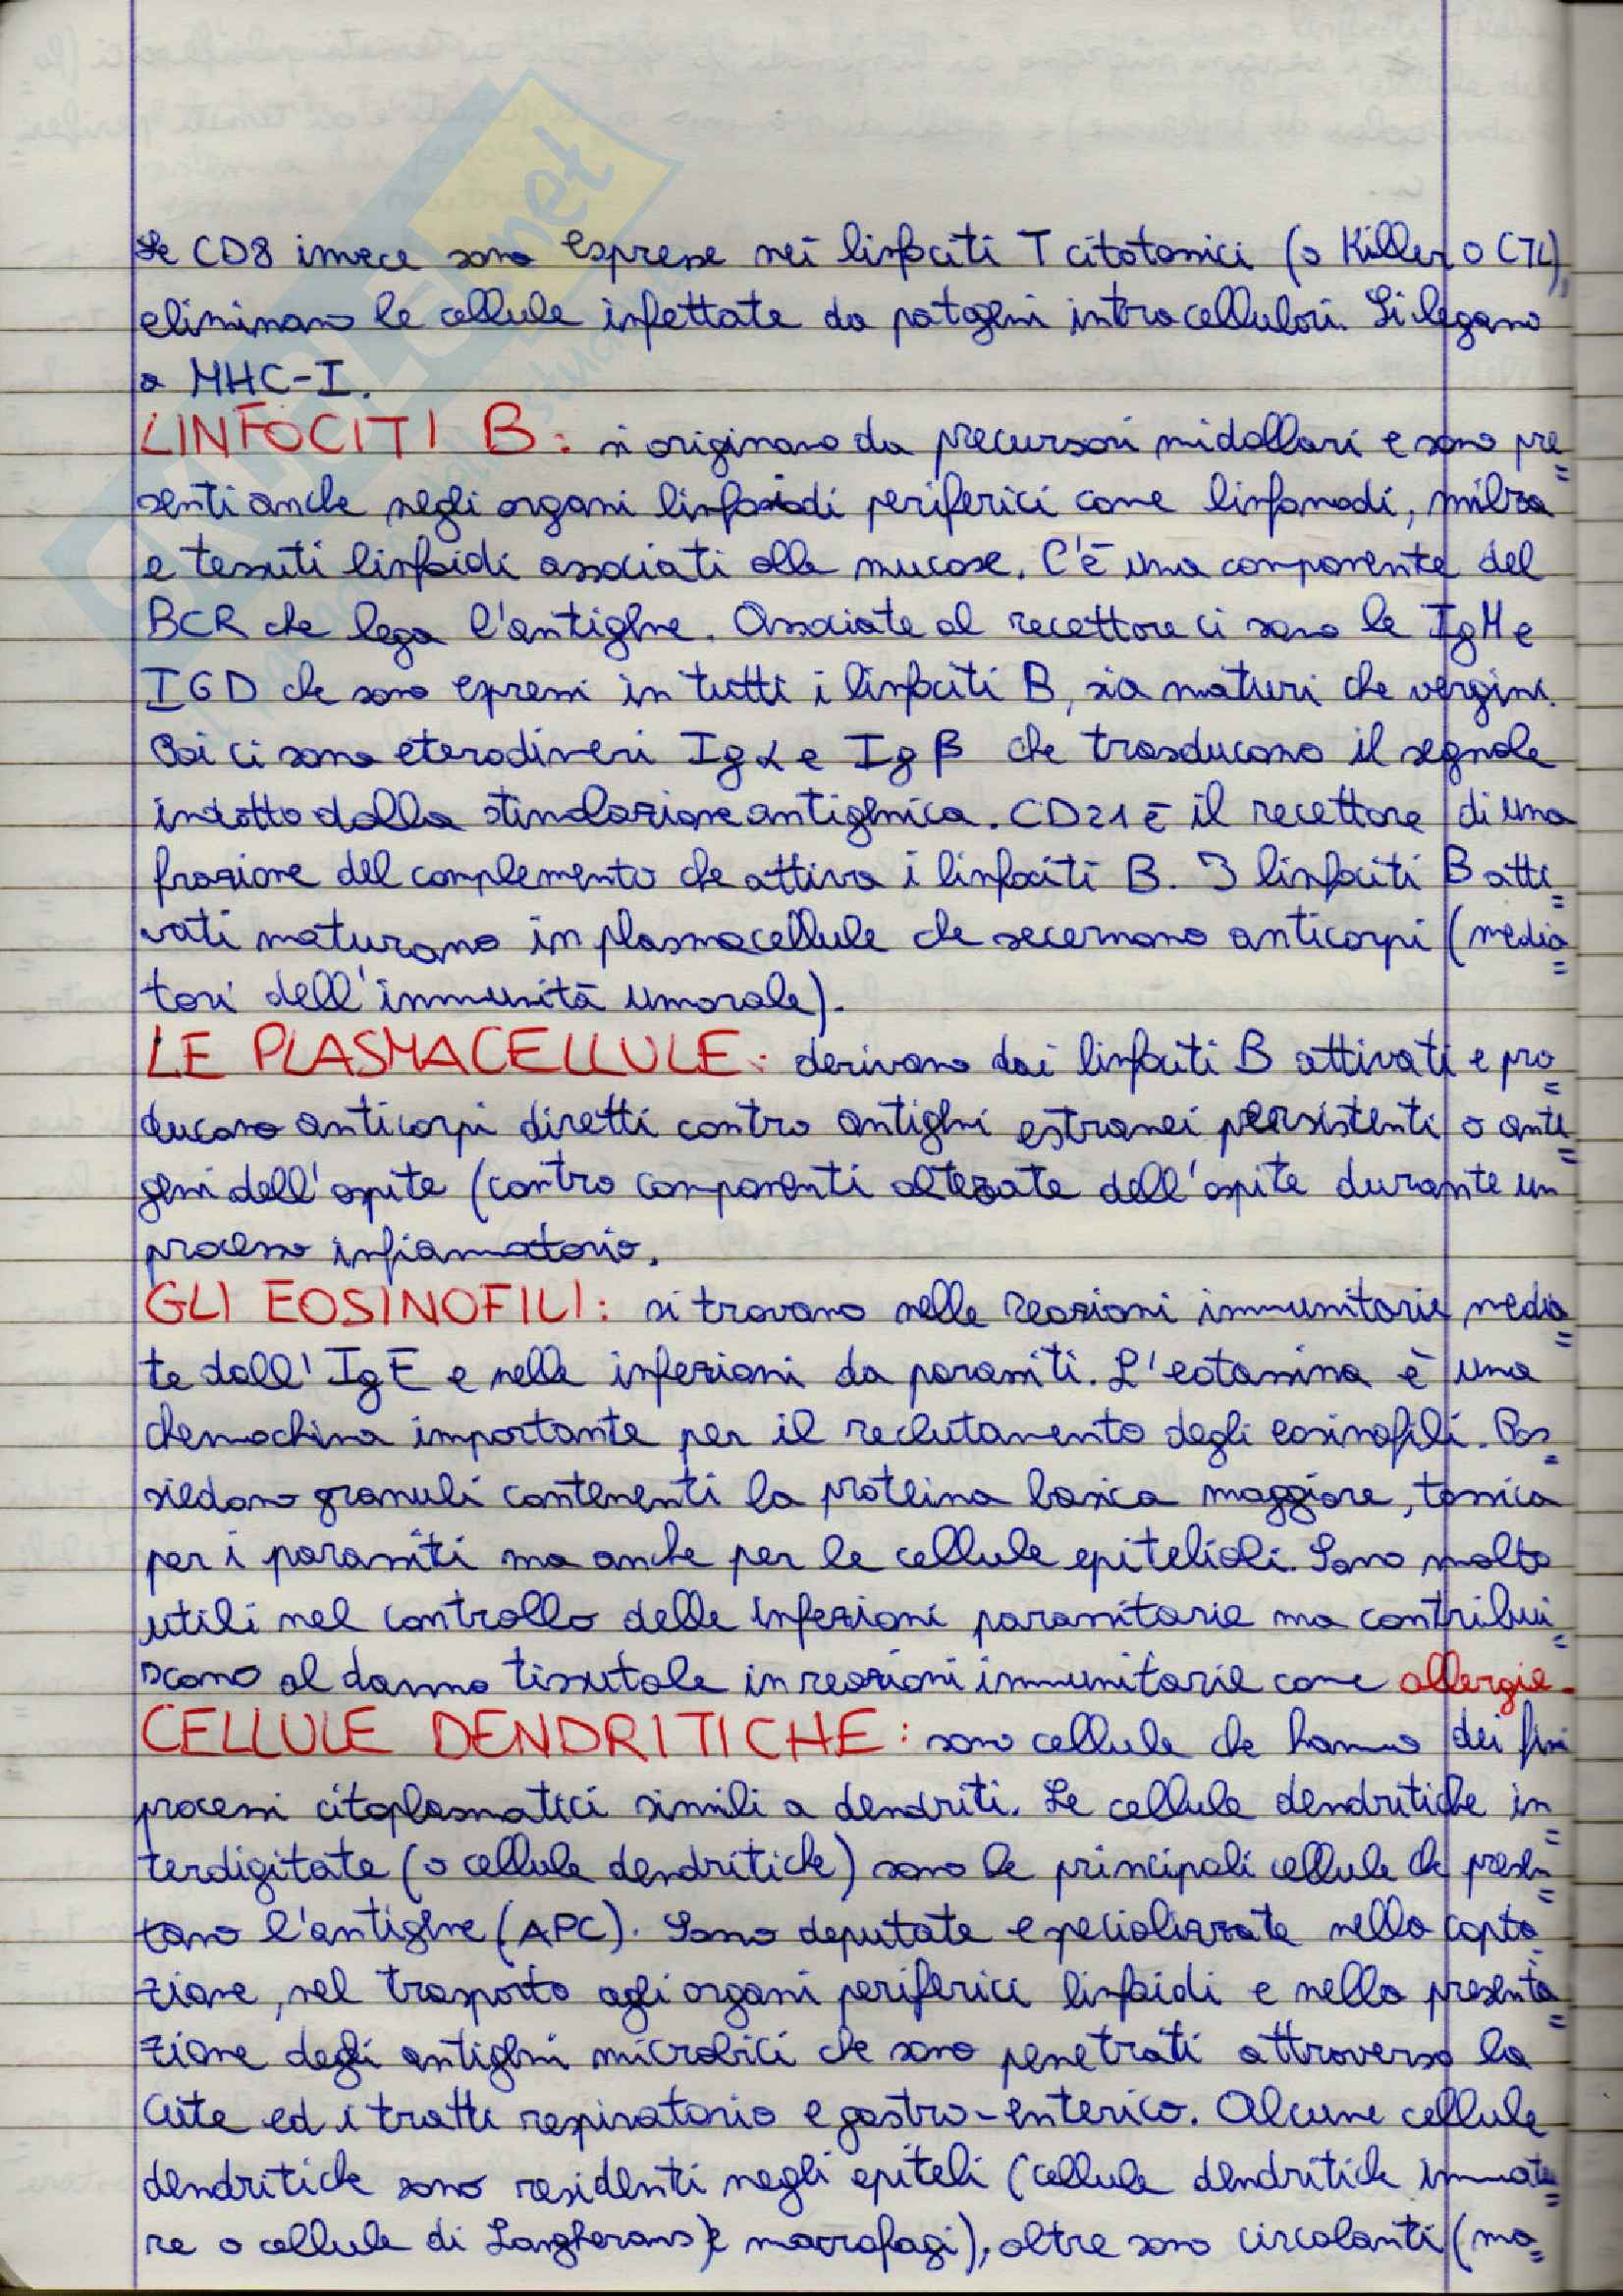 Le CD8 invece sono espresse nei linfociti T citotossici (o Killer o CTL),
eliminano le cellule infettate da patogeni intracellulari. Si legano
a MHC-I.
LINFOCITI B: si originano da precursori midollari e sono pre=
senti anche negli organi linfoidi periferici come linfonodi, milza
e tessuti linfoidi associati alle mucose. C'è una componente del
BCR che lega l'antigene. Associate al recettore ci sono le IgM e
IGD che sono espressi in tutti i linfociti B, sia maturi che vergini.
Poi ci sono eterodimeri Igα e Igβ che trasducono il segnale
indotto dalla stimolazione antigenica. CD21 è il recettore di una
frazione del complemento che attiva i linfociti B. I linfociti B atti=
vati maturano in plasmacellule che secernono anticorpi (media=
tori dell'immunità umorale).
LE PLASMACELLULE: derivano dai linfociti B attivati e pro=
ducono anticorpi diretti contro antigeni estranei persistenti o anti=
geni dell'ospite (contro componenti alterate dell'ospite durante un
processo infiammatorio.
GLI EOSINOFILI: si trovano nelle reazioni immunitarie media=
te dall'IgE e nelle infezioni da parassiti. L'eotassina è una
chemochina importante per il reclutamento degli eosinofili. Pos=
siedono granuli contenenti la proteina basica maggiore, tossica
per i parassiti ma anche per le cellule epiteliali. Sono molto
utili nel controllo delle infezioni parassitarie ma contribui=
scono al danno tissutale in reazioni immunitarie come allergie.
CELLULE DENDRITICHE: sono cellule che hanno dei fini
processi citoplasmatici simili a dendriti. Le cellule dendritiche in=
terdigitate (o cellule dendritiche) sono le principali cellule che presen=
tano l'antigene (APC). Sono deputate e specializzate nella capta=
zione, nel trasporto agli organi periferici linfoidi e nella presenta=
zione degli antigeni microbici che sono penetrati attraverso la
cute ed i tratti respiratorio e gastro-enterico. Alcune cellule
dendritiche sono residenti negli epiteli (cellule dendritiche immatu=
re o cellule di Langherans) e macrofagi), altre sono circolanti (ma=